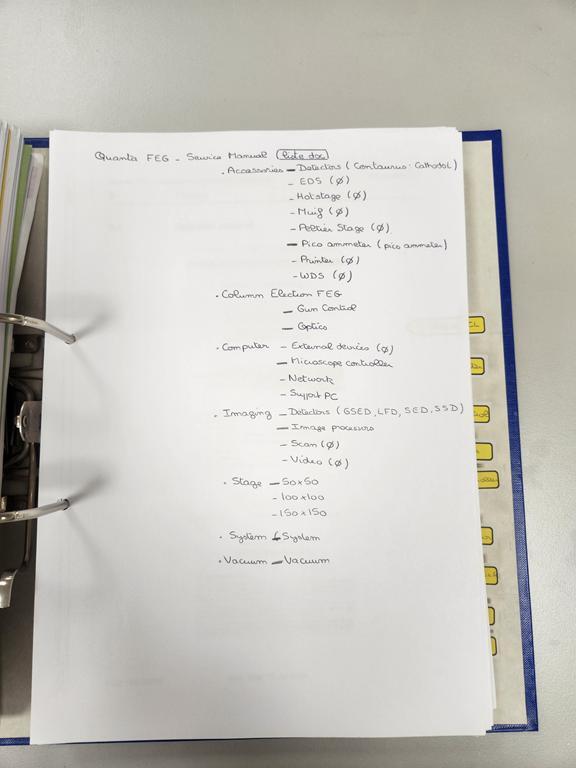 Quanta FEG - Service Manual liste doc
. Accessories - Detectors (Centaurus: CathodoL)
- EDS (Ø)
- Hotstage (Ø)
- Muif (Ø)
- Peltier Stage (Ø)
- Pico ammeter (pico ammeter)
- Printer (Ø)
- WDS (Ø)
. Column Electron FEG
- Gun Control
- Optics
. Computer - External devices (Ø)
- Microscope controller
- Network
- Support PC
. Imaging - Detectors (GSED, LFD, SED, SSD)
- Image processors
- Scan (Ø)
- Video (Ø)
. Stage - 50x50
- 100x100
- 150x150
. System - System
. Vacuum - Vacuum